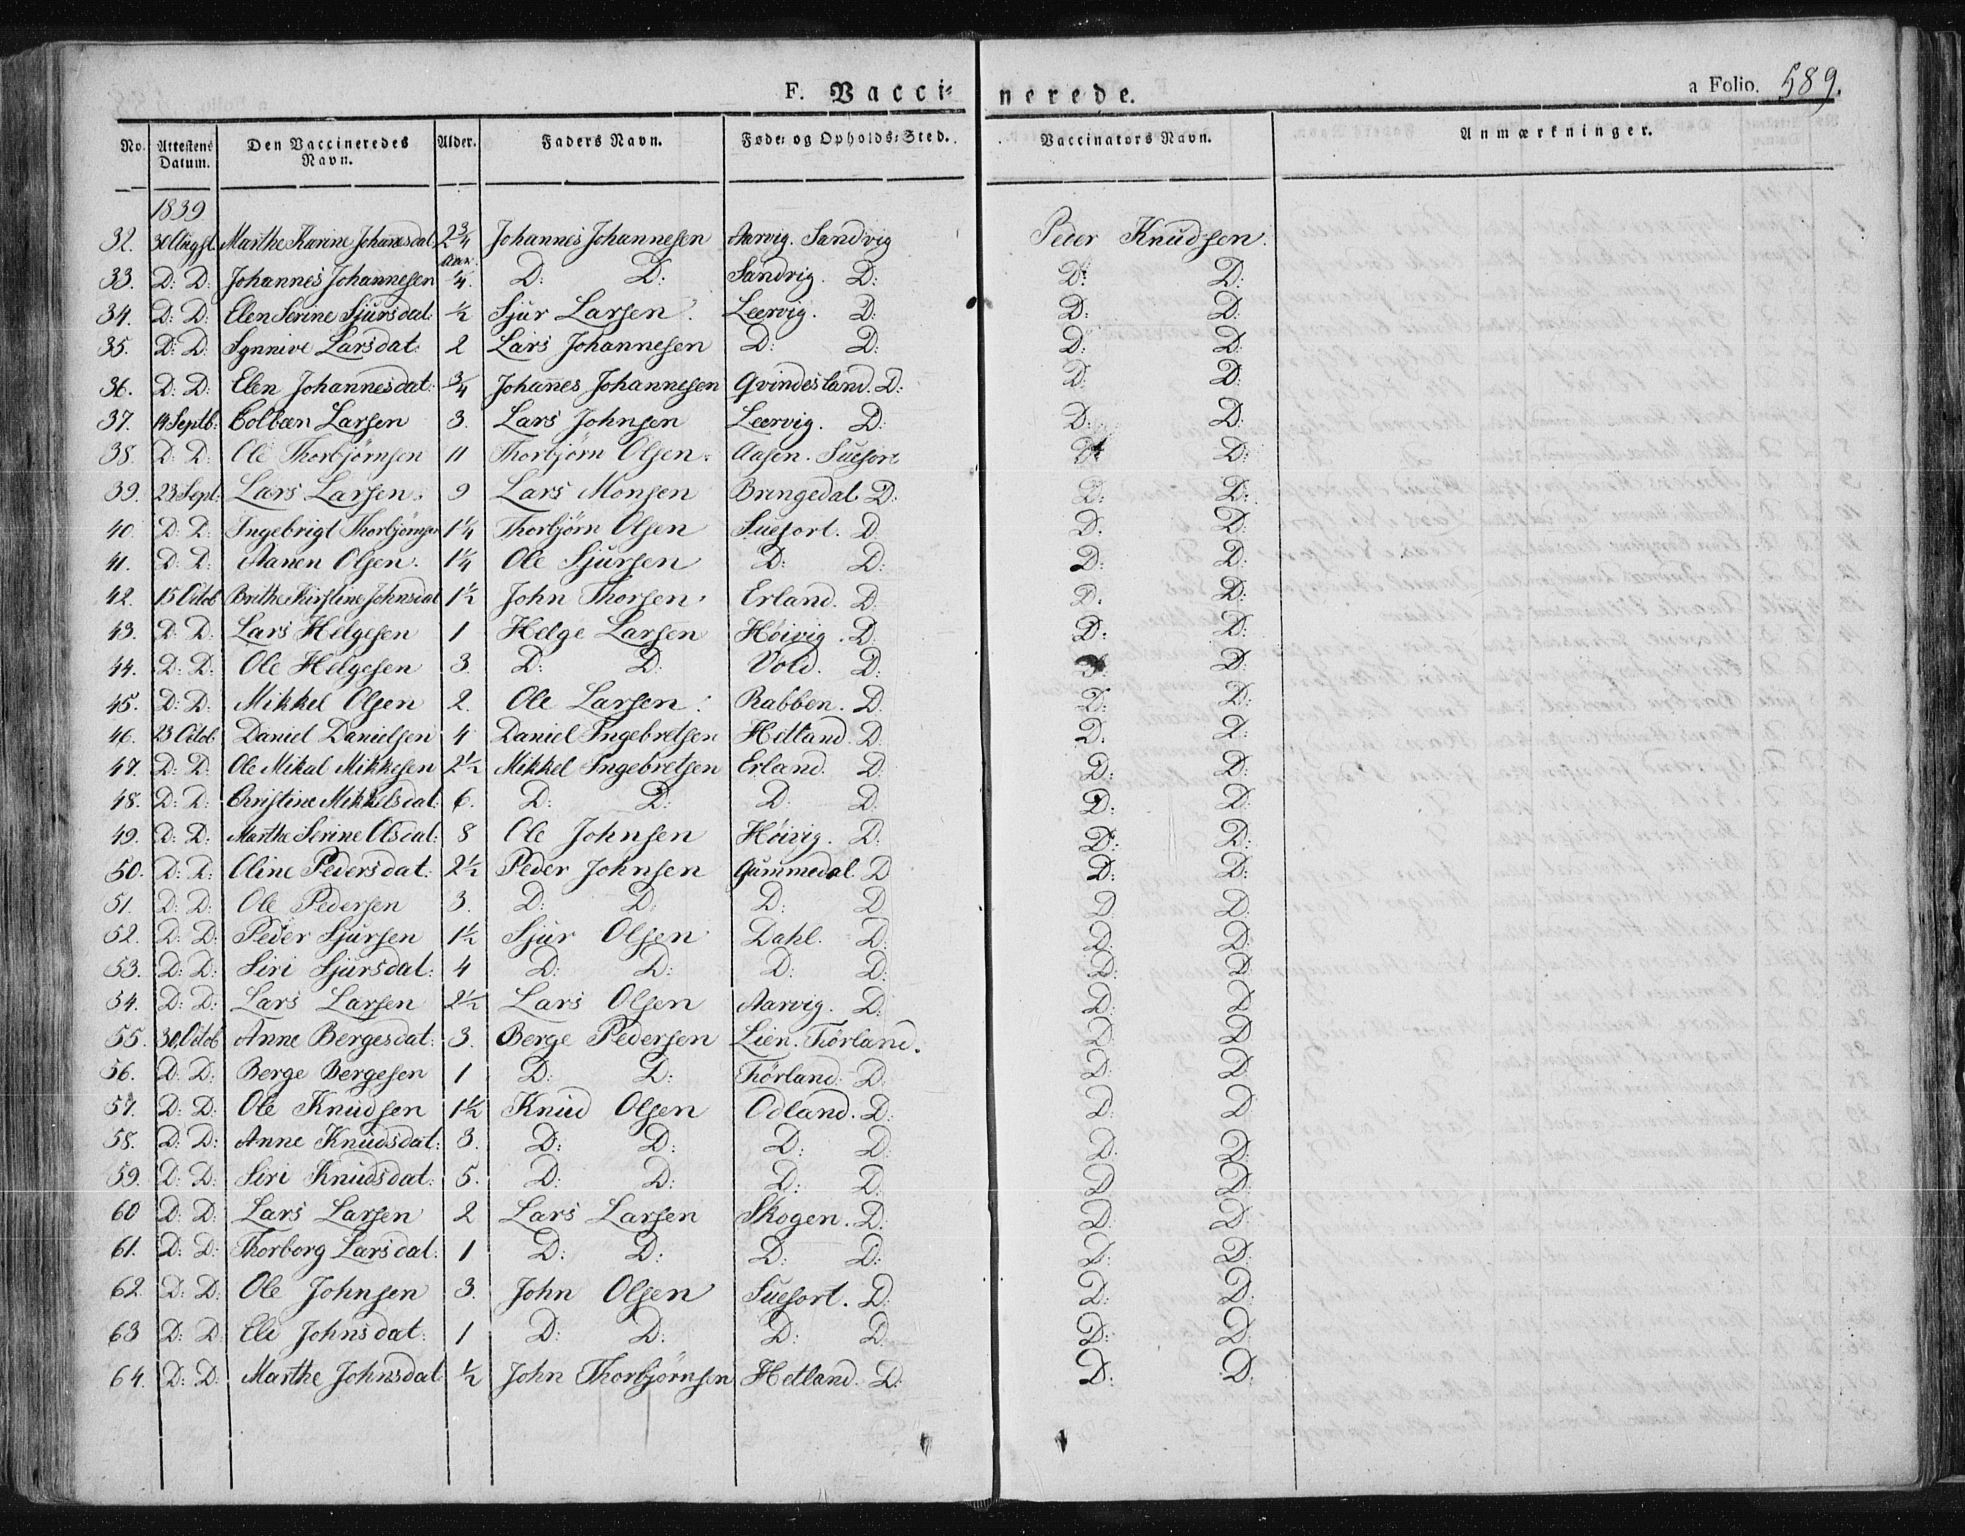 F. Vacci- nerede. a Folio. 589.
No. Attestens Datum. Den Vaccineredes Navn. Alder. Faders Navn. Føde- og Opholds-Sted. Vaccinators Navn. Anmærkninger.
1839
32. 30 Augst. Marthe Karine Johansdat. 2 3/4 Aar. Johannes Johannesen Aarvig. Sandvig Peder Knudsen.
33. D: D: Johannes Johannesen 1/4. D: D: Sandvig. D: D: D:
34. D: D: Elen Serine Sjursdat: 1/2 Sjur Larsen. Leervig. D: D: D:
35. D: D: Synneve Larsdat: 2 Lars Johannesen D: D: D: D:
36. D: D: Elen Johannesdat: 3/4 Johanes Johannesen Qvindesland. D: D: D:
37. 14 Septb: Colben Larsen 3. Lars Johnsen Leervig. D: D: D:
38. D: D: Ole Thorbjørnsen 11 Thorbjørn Olsen. Aasen. Suefort D: D:
39. 23 Sept: Lars Larsen. 9 Lars Monsen Bringedal D: D: D:
40. D: D: Ingebrigt Thorbjørnsen 1 1/4 Thorbjørn Olsen Suefort. D D: D:
41. D: D: Aanen Olsen. 1 1/4 Ole Sjursen D: D: D: D:
42. 15 Octob Brithe Kirstine Johnsdat 1 1/2 John Thorsen. Erland. D D: D:
43. D: D: Lars Helgesen 1 Helge Larsen Høivig. D: D: D:
44. D: D: Ole Helgesen 3. D: D: Vold. D: D:
45. D: D: Mikkel Olsen 2. Ole Larsen. Rabben. D. D: D:
46. 23 Octob. Daniel Danielsen 4 Daniel Ingebretsen Hetland. D. D: D:
47. D: D: Ole Mikal Mikkelsen 2 1/2 Mikkel Ingebretsen Erland. D: D: D:
48. D: D: Christine Mikkelsdat: 6. D: D: D: D: D: D:
49. D: D: Marthe Serine Olsdat: 8 Ole Johnsen Høivig. D: D: D:
50. D: D: Oline Pedersdat: 2 1/2 Peder Johnsen Gammedal D D: D:
51. D: D: Ole Pedersen 3. D: D: D: D D D:
52. D: D: Peder Sjursen 1 1/2 Sjur Olsen Dahl. D: D: D:
53. D: D: Siri Sjursdat: 4 D: D: D: D: D: D:
54. D: D: Lars Larsen 2 1/2 Lars Olsen Aarvig. D: D: D
55. 30, Octob Anne Bergesdat: 3. Berge Pedersen Lien. Førland. D: D
56. D: D: Berge Bergesen 1 D: D: Førland. D: D: D:
57. D: D: Ole Knudsen 1 1/2 Knud Olsen Odland. D: D: D
58. D: D: Anne Knudsdat: 3. D: D: D: D: D: D:
59. D: D: Siri Knudsdat: 5. D: D: D: D: D: D:
60 D: D: Lars Larsen 2 Lars Larsen Skogen. D: D: D:
61. D: D: Thorborg Larsdat: 1 D: D: D: D: D: D:
62. D: D: Ole Johnsen 3. John Olsen Suefort. D: D: D:
63 D: D: Eli Johnsdat: 1 D: D: D: D D: D:
64. D: D: Marthe Johnsdat 1/2 John Thorbjørnsen Hetland. D: D: D: